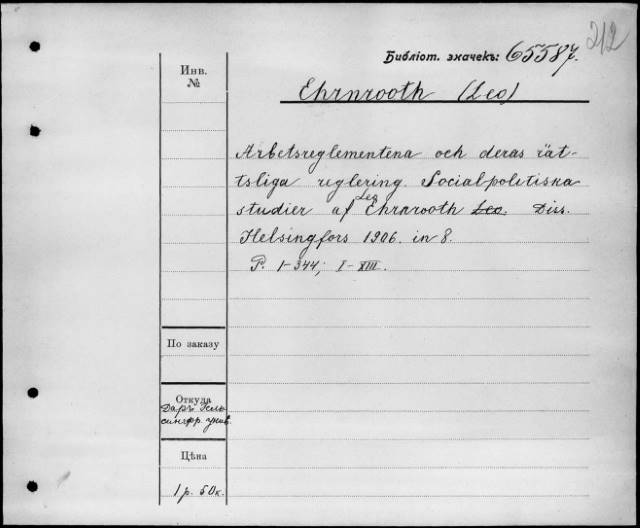 212
Библіот. значекъ: 65587.
Инв.
№
Ehrnrooth (Leo)
Arbetsreglementena och deras rät-
tsliga reglering. Socialpolitiska
studier af Leo Ehrnrooth Leo. Diss.
Helsingfors 1906. in 8.
P. 1-344; I-XIII.
По заказу
Откуда
Даръ Гель-
сингфр. унив.
Цѣна
1 р. 50 к.